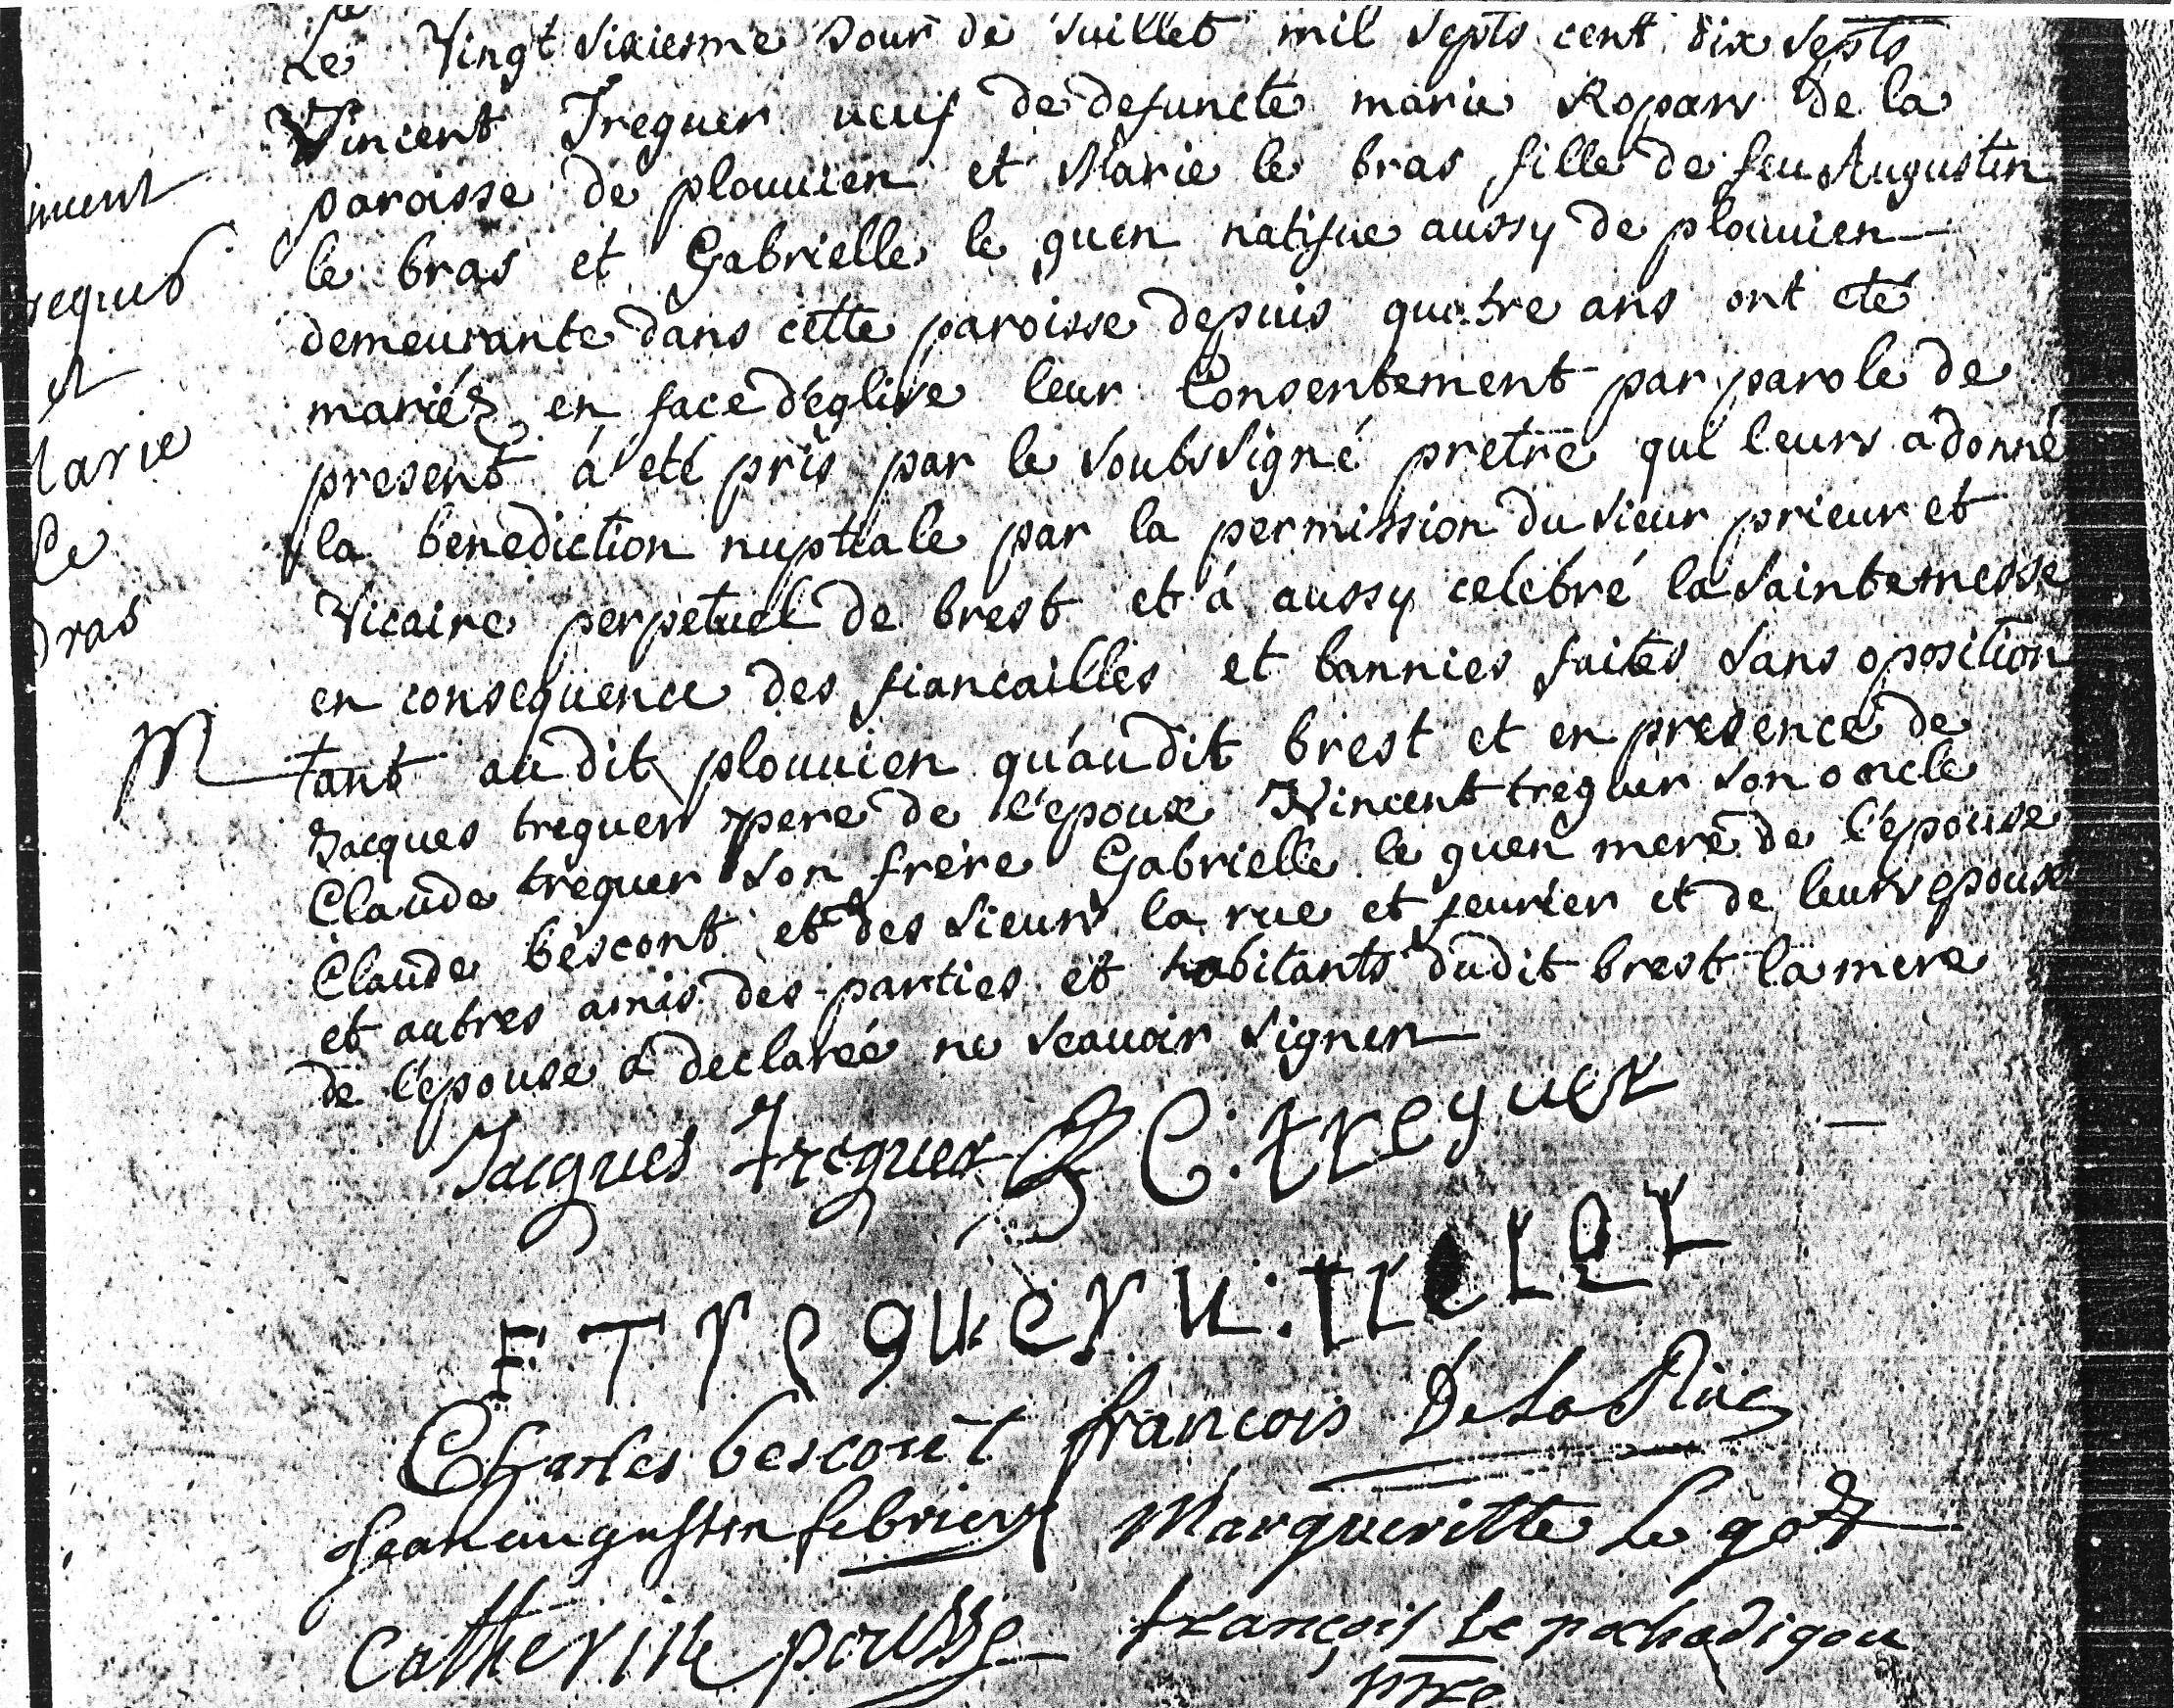 Le Vingt sixiesme Jour de Juillet mil septs cent dix septs
Vincent Treguer ueuf de defuncte marie Ropars de la
paroisse de plouuien et Marie le bras fille de feu Augustin
le bras et Gabrielle le guen natifue aussy de plouuien
demeurante dans cette paroisse depuis quatre ans ont eté
mariés en face d'eglise leur Consentement par parole de
present à eté pris par le soubssigné pretre qui leurs a donné
la benediction nuptiale par la permission du sieur prieur et
Vicaire perpetuel de brest et à aussy celebré la sainte messe
en consequence des fiancailles et bannies faites sans oposition
tant audit plouuien qu'audit brest et en presence de
Jacques treguer pere de l'epoux Vincent treguer son oncle
Claude treguer son frere Gabrielle le guen mere de l'epouse
Claude bescont et des sieurs la rue et feurier et de leurs epouse
et autres amis des parties et habitants dudit brest la mere
de l'epouse à declarée ne scauoir signer
incent
reguer
et
Marie
Le
bras
M
Jacques Treguer C: treguer
F: Treguer u: treguer
Charles bescout francois De La Rue
Jean augustin febrier Margueritte Le goff
Catherine pousse françois Le pochadigou
ptre